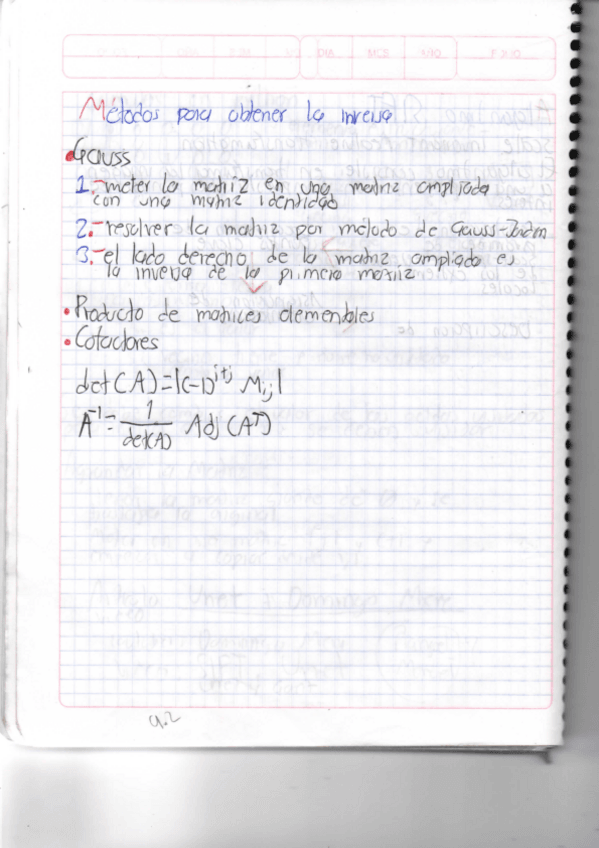 Métodos para obtener la inversa
•Gauss
1.-meter la matriz en una matriz ampliada
con una matriz identidad
2.-resolver la matriz por metodo de Gauss-Jordan
3.-el lado derecho de la matriz ampliada es
la inversa de la primera matriz
•Producto de matrices elementales
•Cofactores
det(A)=|(-1)^{i+j} M_{ij}|
A^{-1}= 1/det(A) Adj(A^T)
4.2